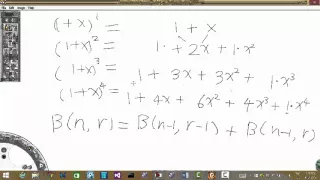 (1+x)^1 = 1 + x
(1+x)^2 = 1· + 2x + 1·x^2
(1+x)^3 = 1 + 3x + 3x^2 + 1·x^3
(1+x)^4 = 1 + 4x + 6x^2 + 4x^3 + 1·x^4
B(n, r) = B(n-1, r-1) + B(n-1, r)